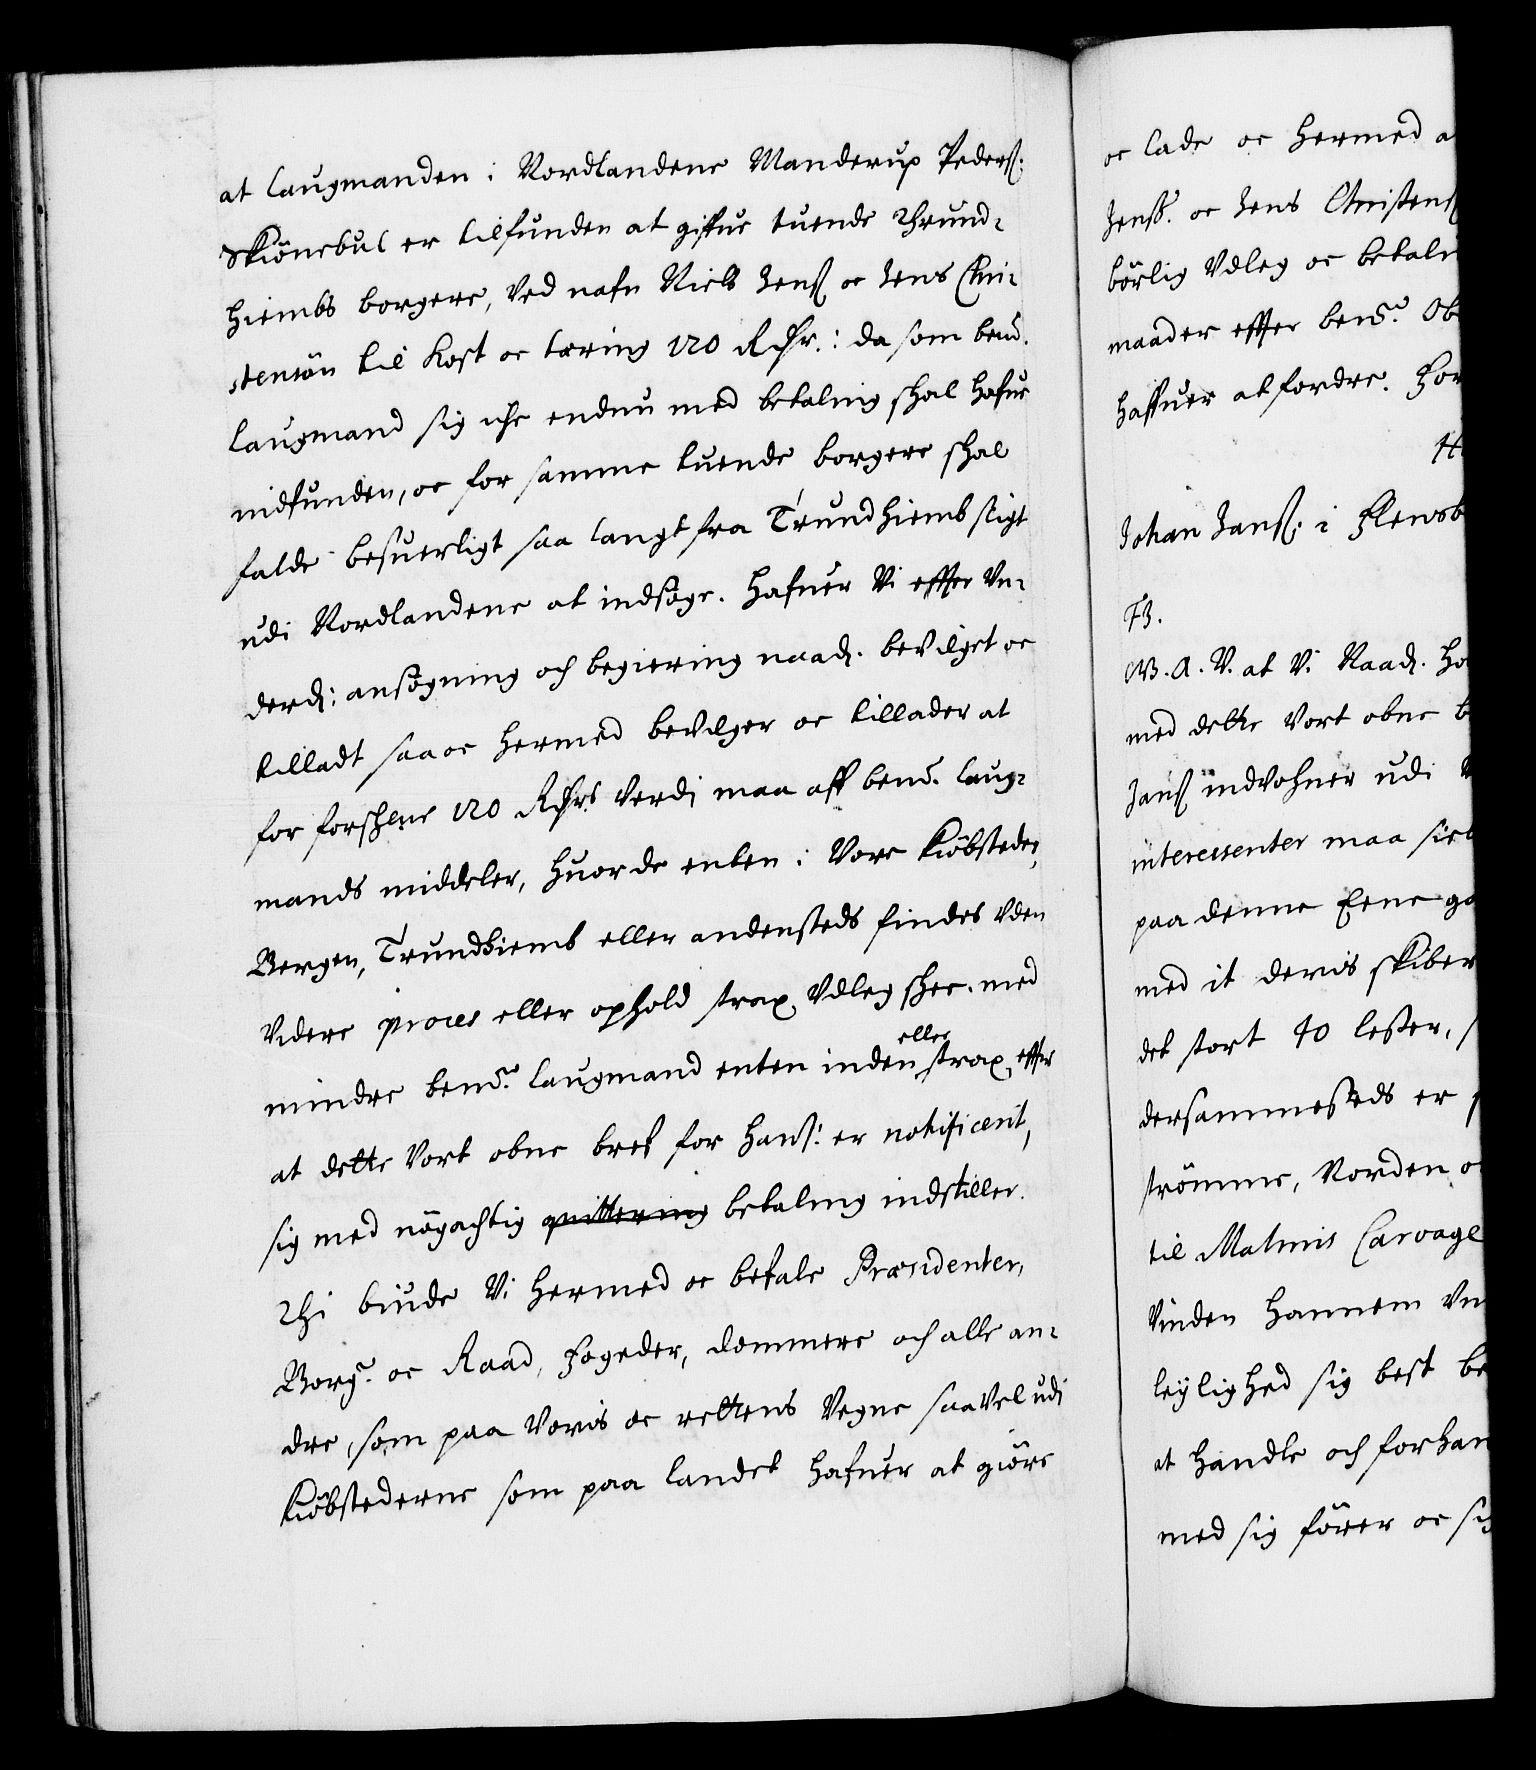 at laugmanden i Nordlandene Manderup Peders:
Skiönebul er tilfunden at giffue tuende Thrund-
hiembs borgere, ved nafn Niels Jens: oc Jens Chri-
stensön til Kost oc tæring 120 Rdlr.: da som bem.
laugmand sig iche endnu med betaling shal hafue
indfunden, oc for samme tuende borgere shal
falde besuerligt saa langt fra Trundhiemb sligt
udi Nordlandene at indsöge. Hafuer Vi effter Un-
derd: ansögning och begiering naad: bevilget oc
tilladt saa oc hermed bevilger oc tillader at
for forschene 120 Rdlrs verdi maa aff bem. laug-
mands middeler, huor de enten i Vore Kiöbsteder,
Bergen, Trundhiemb eller andensteds findes uden
videre proces eller ophold strax udleg shee. med
mindre bem. laugmand enten inden eller strax effter
at dette Vort obne bref for hans: er notificerit,
sig med nögachtig quittering betaling indstiller.
Thi biude Vi hermed oc befale Præsidenter,
Borg: oc Raad, fogeder, dommere och alle an-
dre, som paa Voris oc rettens Vegne saavel udi
Kiöbstederne som paa landet hafuer at giöre
oc lade oc hermed a
Jenss. oc Jens Christens
börlig Udleg oc betaln
maader effter bem. Ob
haffuer at fordre. For
H
Johan Jans: i Flensb
F3.
G. A. V. at Vi Naad. ha
med dette Vort obne b
Jans indvohner udi
interessenter maa sie
paa denne Eene ga
med it deris skiber
det stort 40 lester,
dersammesteds er
strömme, Norden o
til Malmis Carvage
Vinden hannem Un
leylighed sig best be
at handle och forhan
med sig förer oc si